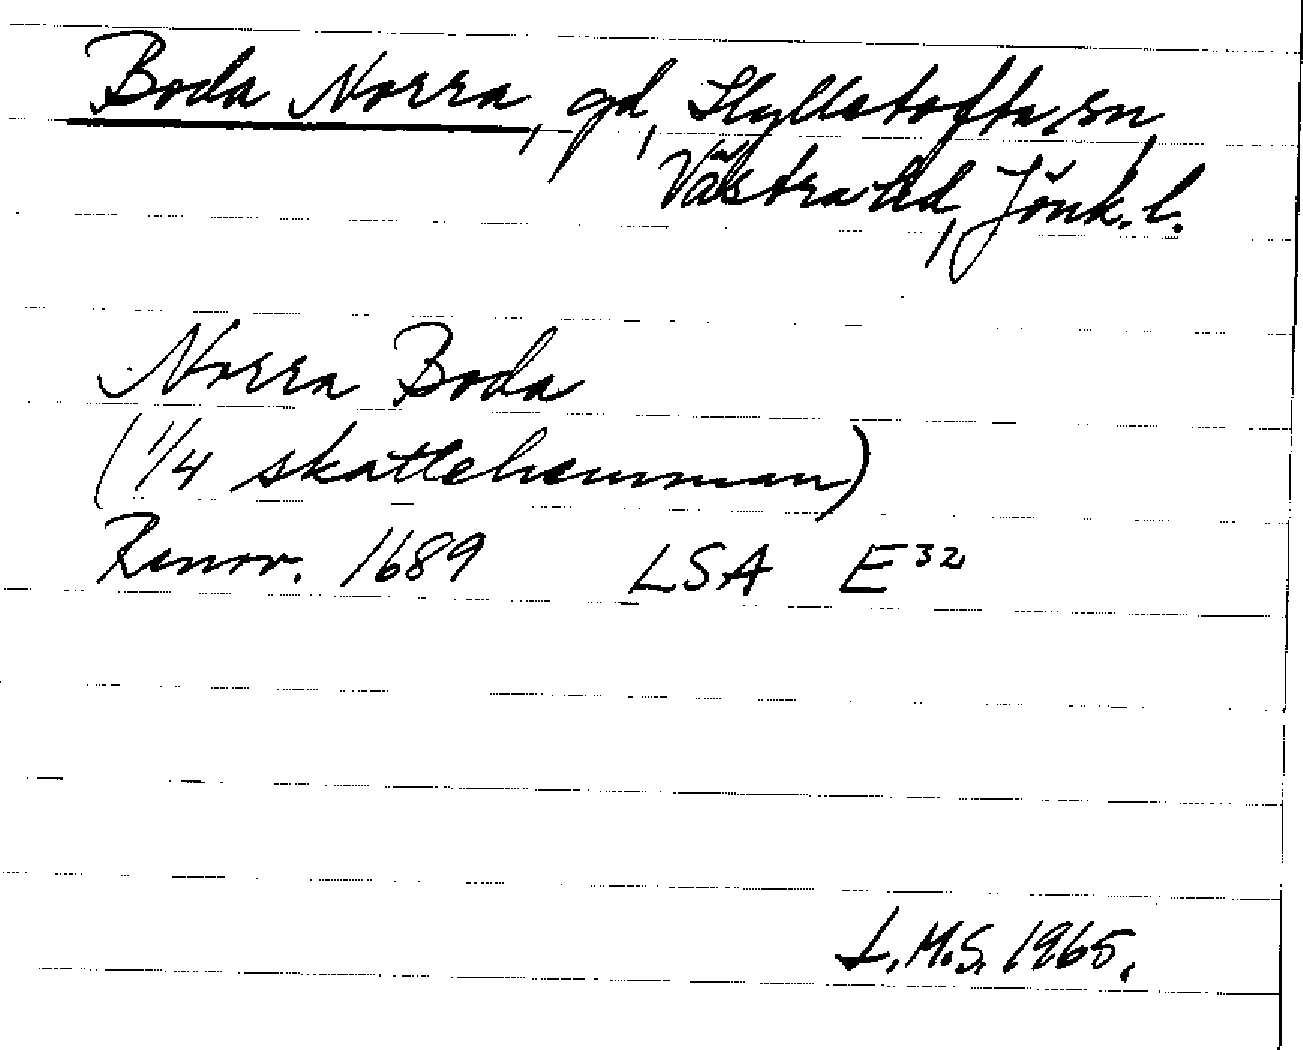 Boda Norra, gd, Hyllstofta sn,
Västra hd, Jönk. l.
Norra Boda
(1/4 skattehemman)
Renov. 1689 LSA E32
L.M.S. 1965.